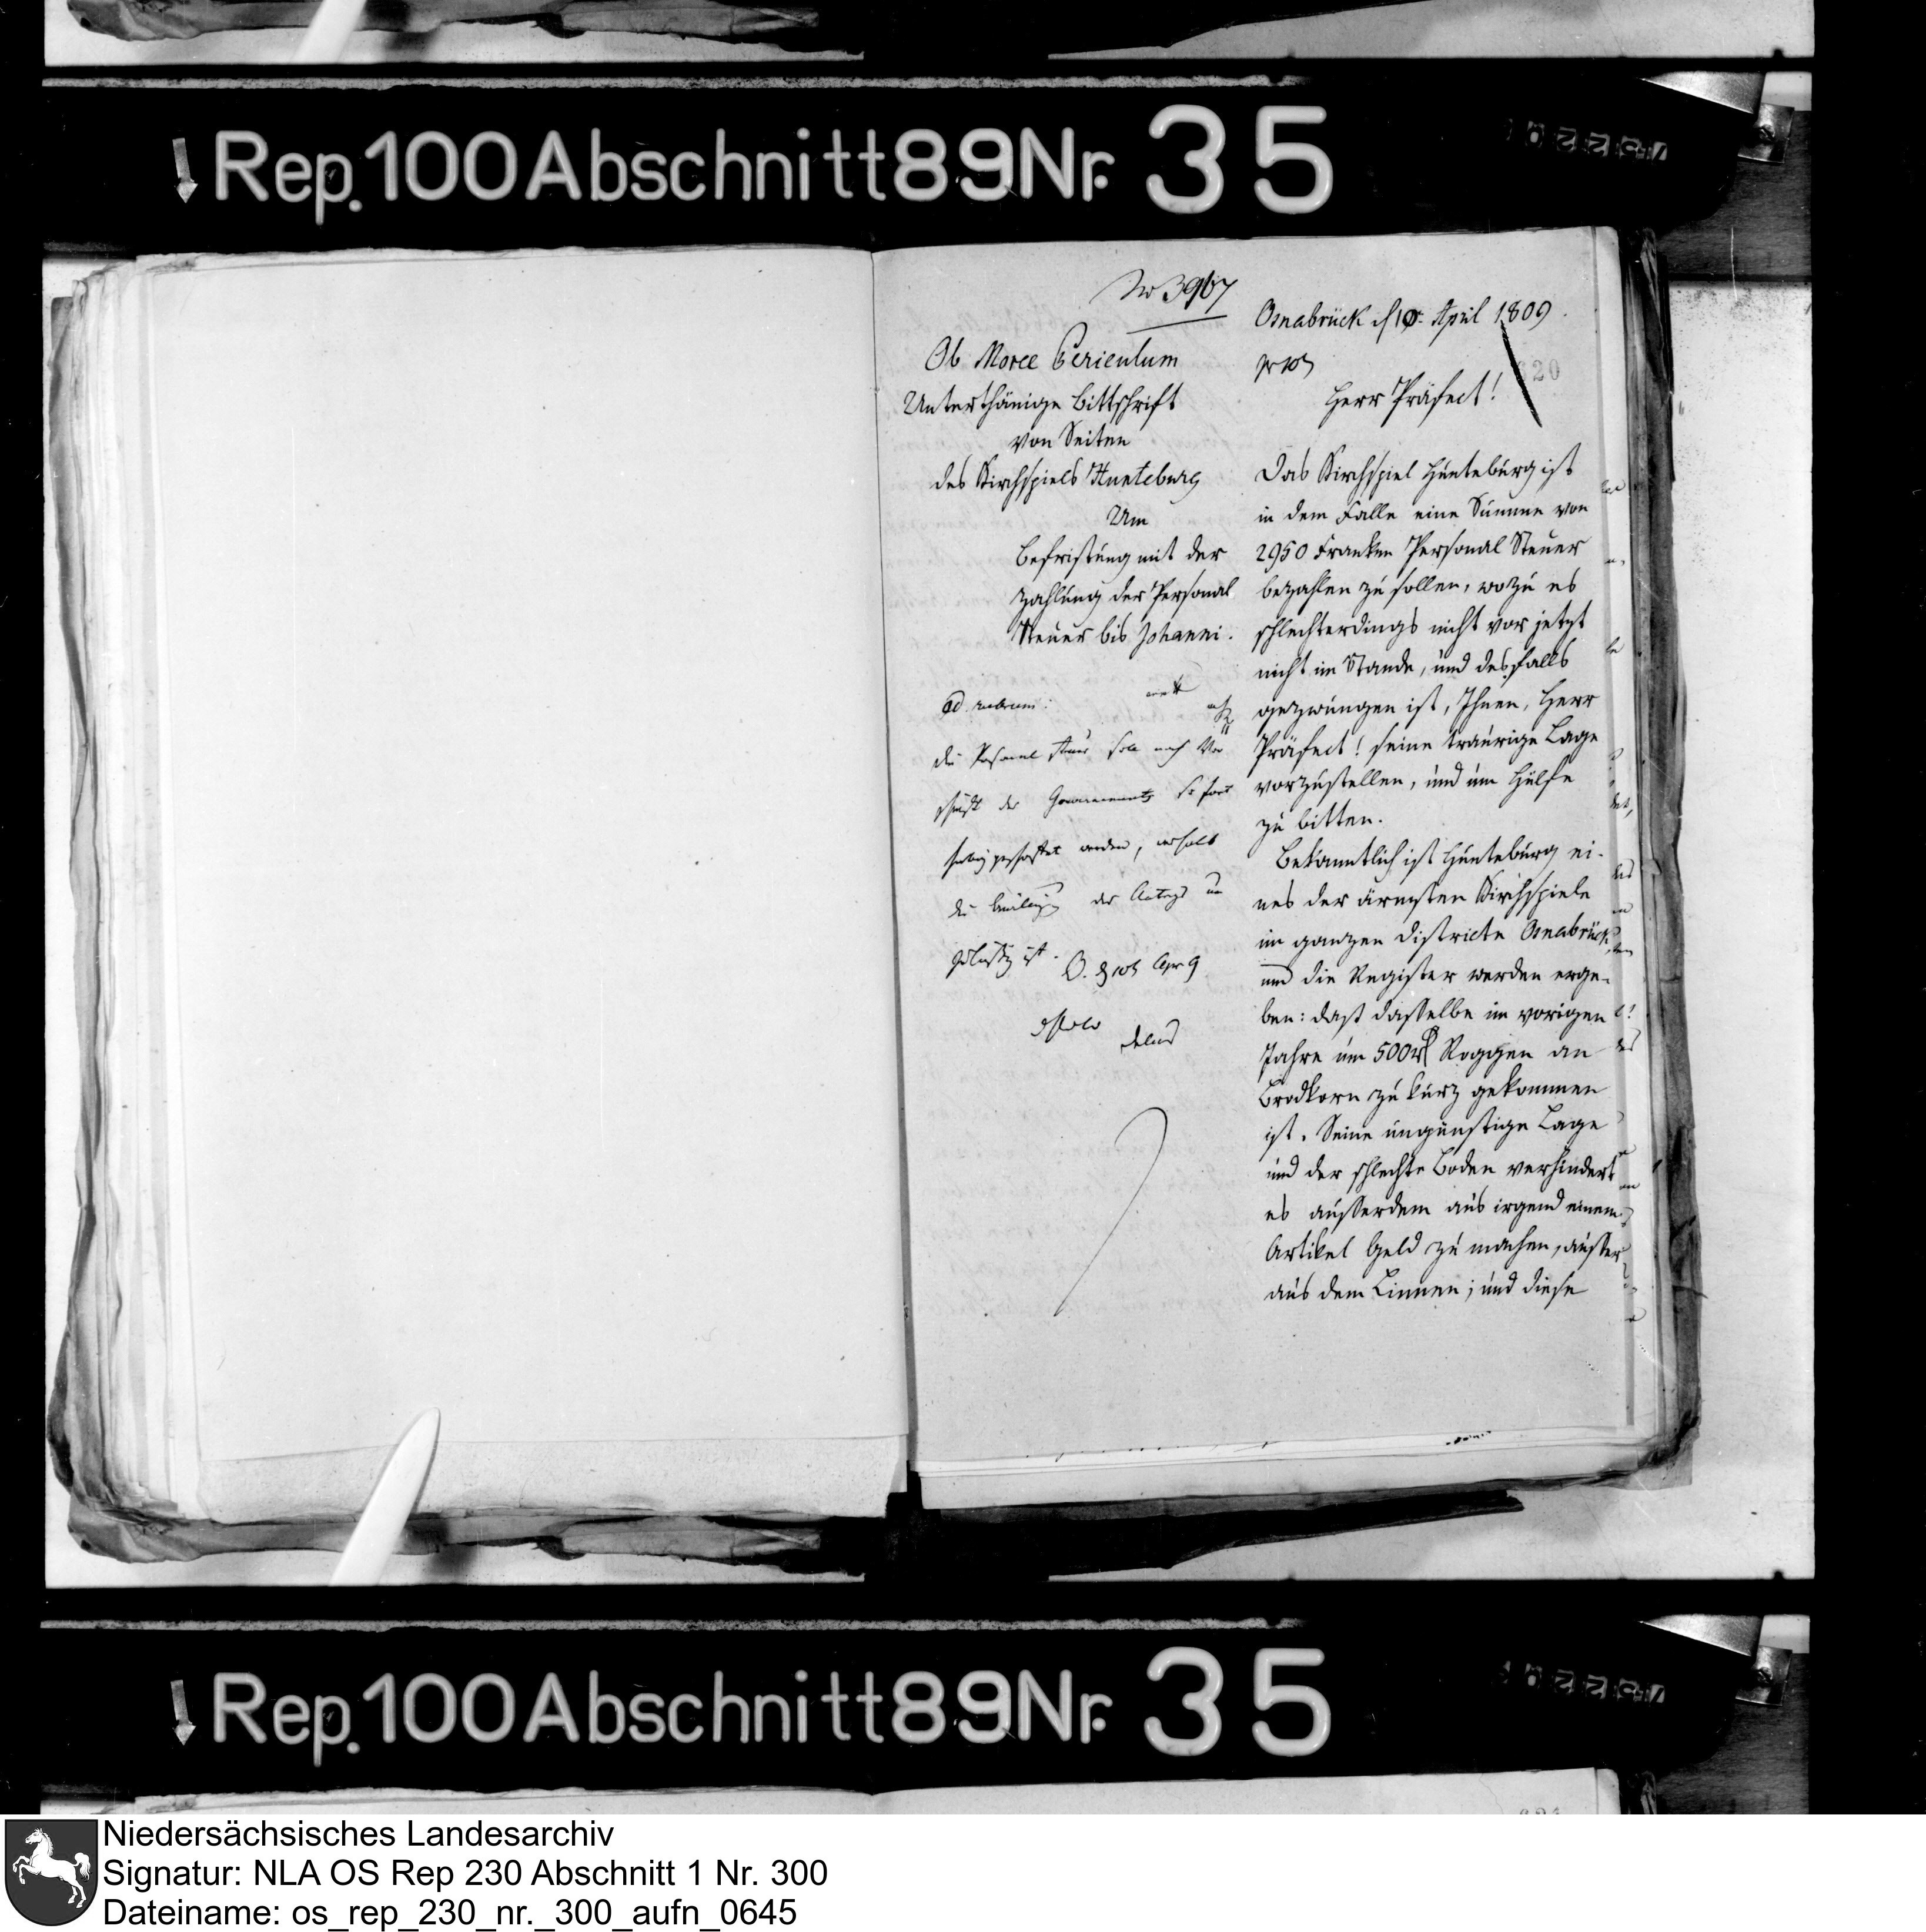 Rep. 100 Abschnitt 89 Nr. 35
No 3967
Osnabrück d 10t April 1809
620
Ob Moree Periculum
Unterthänige Bittschrift
von Seiten
des Kirchspiels Hunteburg
Um
Befristung mit der
Zahlung der Personal
Steuer bis Johanni.
ad rubrum:
die Personal Steuer soll nach Vor
schrift des Gouvernements sofort
werden, weshalb
die des Antrags un
zulässig ist.
O. d 10t Apr 9
Delius
Herr Präfect!
Das Kirchspiel Hunteburg ist
in dem Falle eine Summe von
2950 Franken Personal Steuer
bezahlen zu sollen, wozu es
schlechterdings nicht vor jetzt
nicht im Stande, und desfalls
gezwungen ist, Ihnen, Herr
Präfect! seine traurige Lage
vorzustellen, und um Hülfe
zu bitten.
Bekanntlich ist Hunteburg ei-
nes der ärmsten Kirchspiele
im ganzen Districte Osnabrück
und die Register werden erge-
ben: dast dasselbe im vorigen
Jahre um 500 Roggen an
Brodkorn zu kurz gekommen
ist. Seine ungünstige Lage
und der schlechte Boden verhindert
es ausserdem aus irgend einem
Artikel Geld zu machen, ausser
aus dem Linnen; und diese
Rep. 100 Abschnitt 89 Nr. 35
Niedersächsisches Landesarchiv
Signatur: NLA OS Rep 230 Abschnitt 1 Nr. 300
Dateiname: os_rep_230_nr._300_aufn_0645